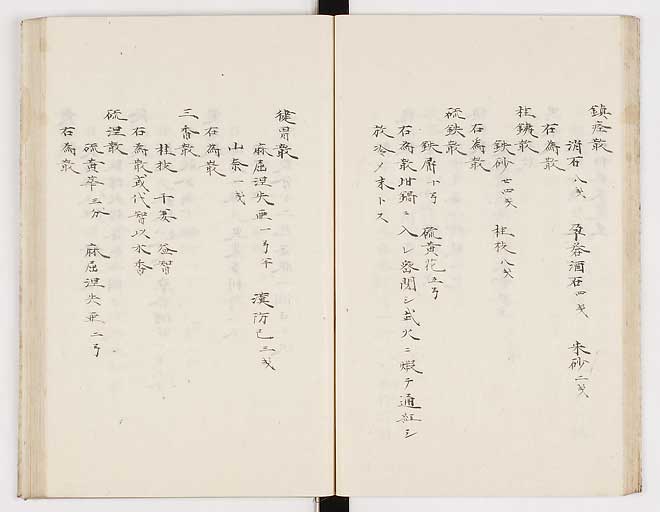 鎮痙散
消石八戔 孕呑酒石四戔 朱砂二戔
右為散
桂鏽散
鉄砂廿四戔 桂枝八戔
硫鉄散
鉄屑十弓 硫黄花五弓
右為散坩鍋ニ入レ密閉シ武火ニ煆テ通紅シ
放冷ノ末トス
健胃散
麻屈涅失亜一弓半 漢防已三戔
山奈一戔
右為散
三香散
桂枝 干姜 益智
右為散或代智以木香
硫涅散
硫黄華三分 麻屈涅失亜二弓
右為散